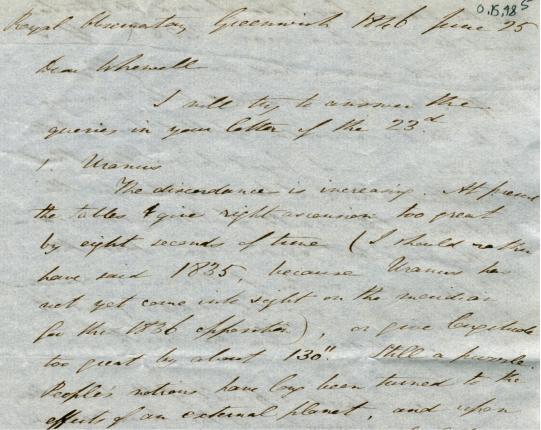 O.15.48 5
Royal Observatory Greenwich 1846 June 25
Dear Whewell
I will try to answer the
queries in your letter of the 23d
1. Uranus
The discordance is increasing. At present
the tables give right ascension too great
by eight seconds of time (I should rather
have said 1835, because Uranus has
not yet come into sight on the meridian
for the 1836 opposition), or give longitude
too great by about 130". Still a puzzle.
People's notions have long been turned to the
effects of an external planet, and upon